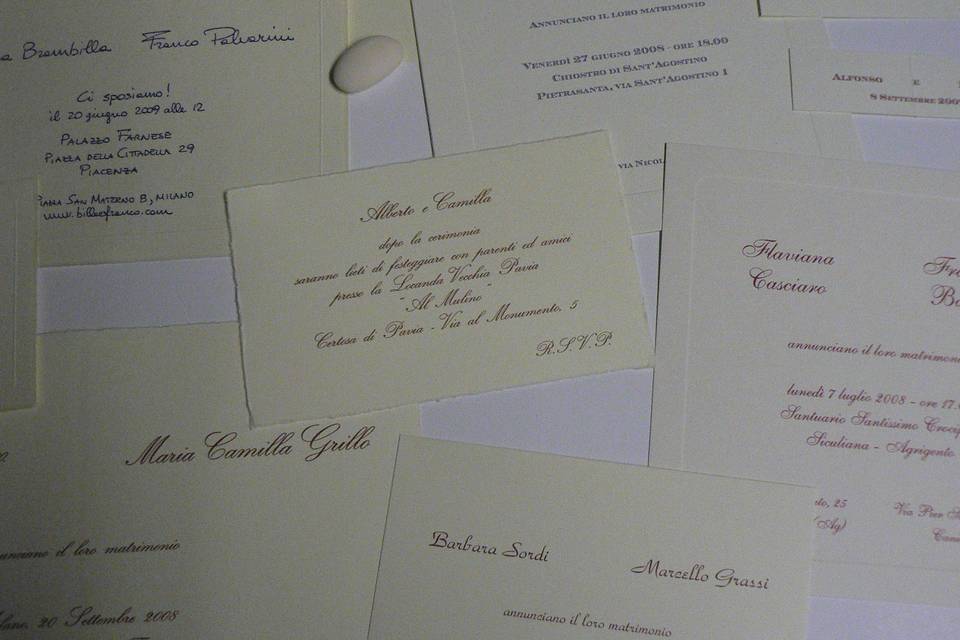 Brambilla Franco Palvarini
Ci sposiamo!
il 20 giugno 2009 alle 12
Palazzo Farnese
Piazza della Cittadella 29
Piacenza
Piana San Materno 8, Milano
www.billaefranco.com
Annunciano il loro matrimonio
Venerdì 27 giugno 2008 - ore 18.00
Chiostro di Sant'Agostino
Pietrasanta, via Sant'Agostino 1
via Nicol
Alfonso e
8 Settembre 200
Alberto e Camilla
dopo la cerimonia
saranno lieti di festeggiare con parenti ed amici
presso la Locanda Vecchia Pavia
"Al Mulino"
Certosa di Pavia - Via al Monumento, 5
R.S.V.P.
Flaviana
Casciaro
Fr
Bo
annunciano il loro matrimonio
lunedì 7 luglio 2008 - ore 17.
Santuario Santissimo Crocif
Siculiana - Agrigento
to, 25
(Ag)
Via Pier S
Can
Maria Camilla Grillo
nunciano il loro matrimonio
lano, 20 Settembre 2008
Barbara Sordi
Marcello Grassi
annunciano il loro matrimonio